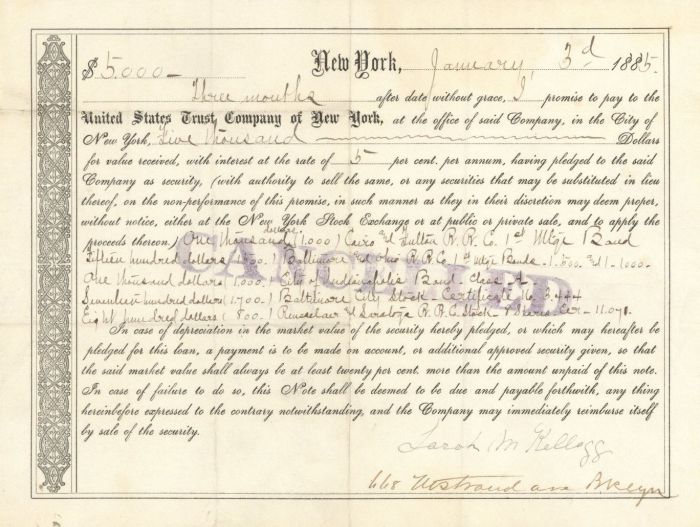 $ 5.000 — New York, January, 3d 1885.
Three months after date without grace, I promise to pay to the
United States Trust Company of New York, at the office of said Company, in the City of
New York, Five thousand Dollars
for value received, with interest at the rate of 5 per cent. per annum, having pledged to the said
Company as security, (with authority to sell the same, or any securities that may be substituted in lieu
thereof, on the non-performance of this promise, in such manner as they in their discretion may deem proper,
without notice, either at the New York Stock Exchange or at public or private sale, and to apply the
proceeds thereon,) One thousand dollars (1.000) Cairo & Fulton R.R. Co. 1st Mtge Bond
Fifteen hundred dollars (1.500) Baltimore and Ohio R.R. Co. 1st Mtge Bonds - 1-500 & 1-1000-
One thousand dollars (1.000) City of Indianapolis Bond - Class A.
Seventeen hundred dollars (1.700) Baltimore City Stock - Certificate No
Eight hundred dollars (800.) Rensselaer & Saratoga R.R. Co. Stock 8 shares Cer - 11.071.
CANCELLED
In case of depreciation in the market value of the security hereby pledged, or which may hereafter be
pledged for this loan, a payment is to be made on account, or additional approved security given, so that
the said market value shall always be at least twenty per cent. more than the amount unpaid of this note.
In case of failure to do so, this Note shall be deemed to be due and payable forthwith, any thing
hereinbefore expressed to the contrary notwithstanding, and the Company may immediately reimburse itself
by sale of the security.
Sarah M Kellogg
668 Nostrand ave Bklyn